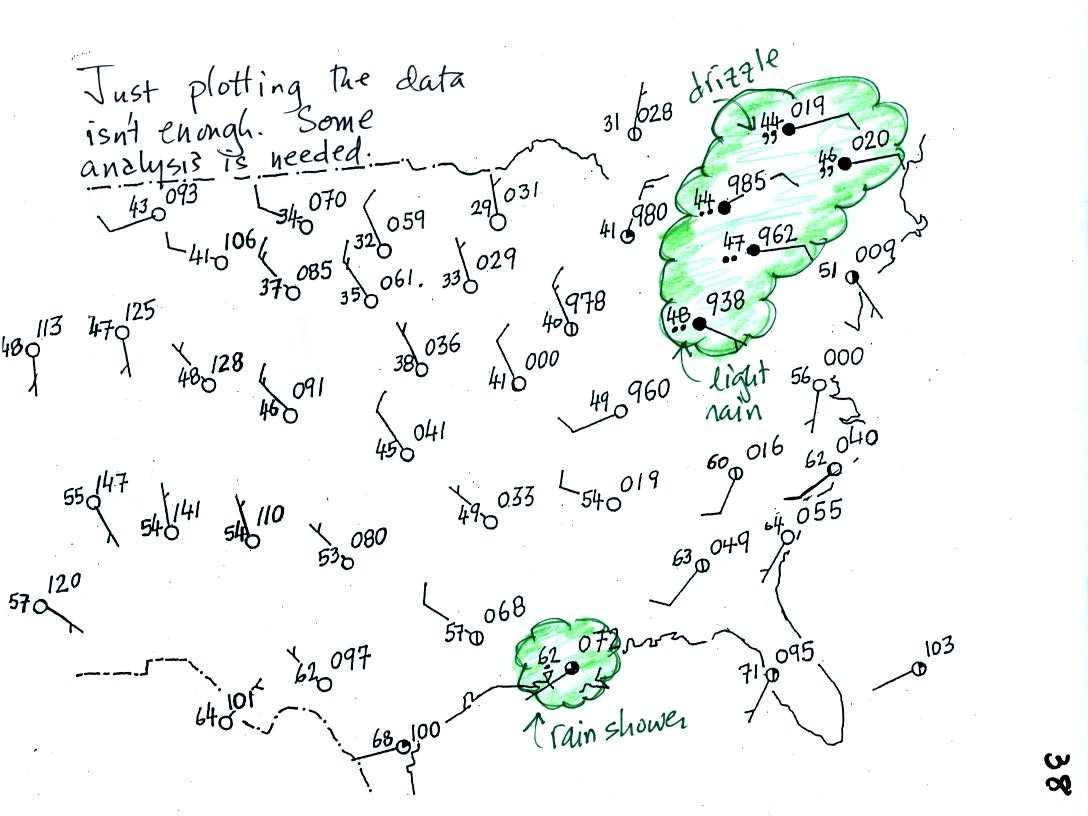 Just plotting the data
isn't enough. Some
analysis is needed.
drizzle
31 028
44 019
,,
46 020
,,
43 093
34 070
32 059
29 031
41 980
44 985
47 962
51 009
41 106
37 085
35 061.
33 029
40 978
48 938
48 113
47 125
48 128
46 091
38 036
41 000
49 960
56 000
light
rain
45 041
60 016
62 040
55 147
54 141
54 110
53 080
49 033
54 019
64 055
63 049
57 120
57 068
62 072
62 097
71 095
103
64 101
68 100
rain shower
38